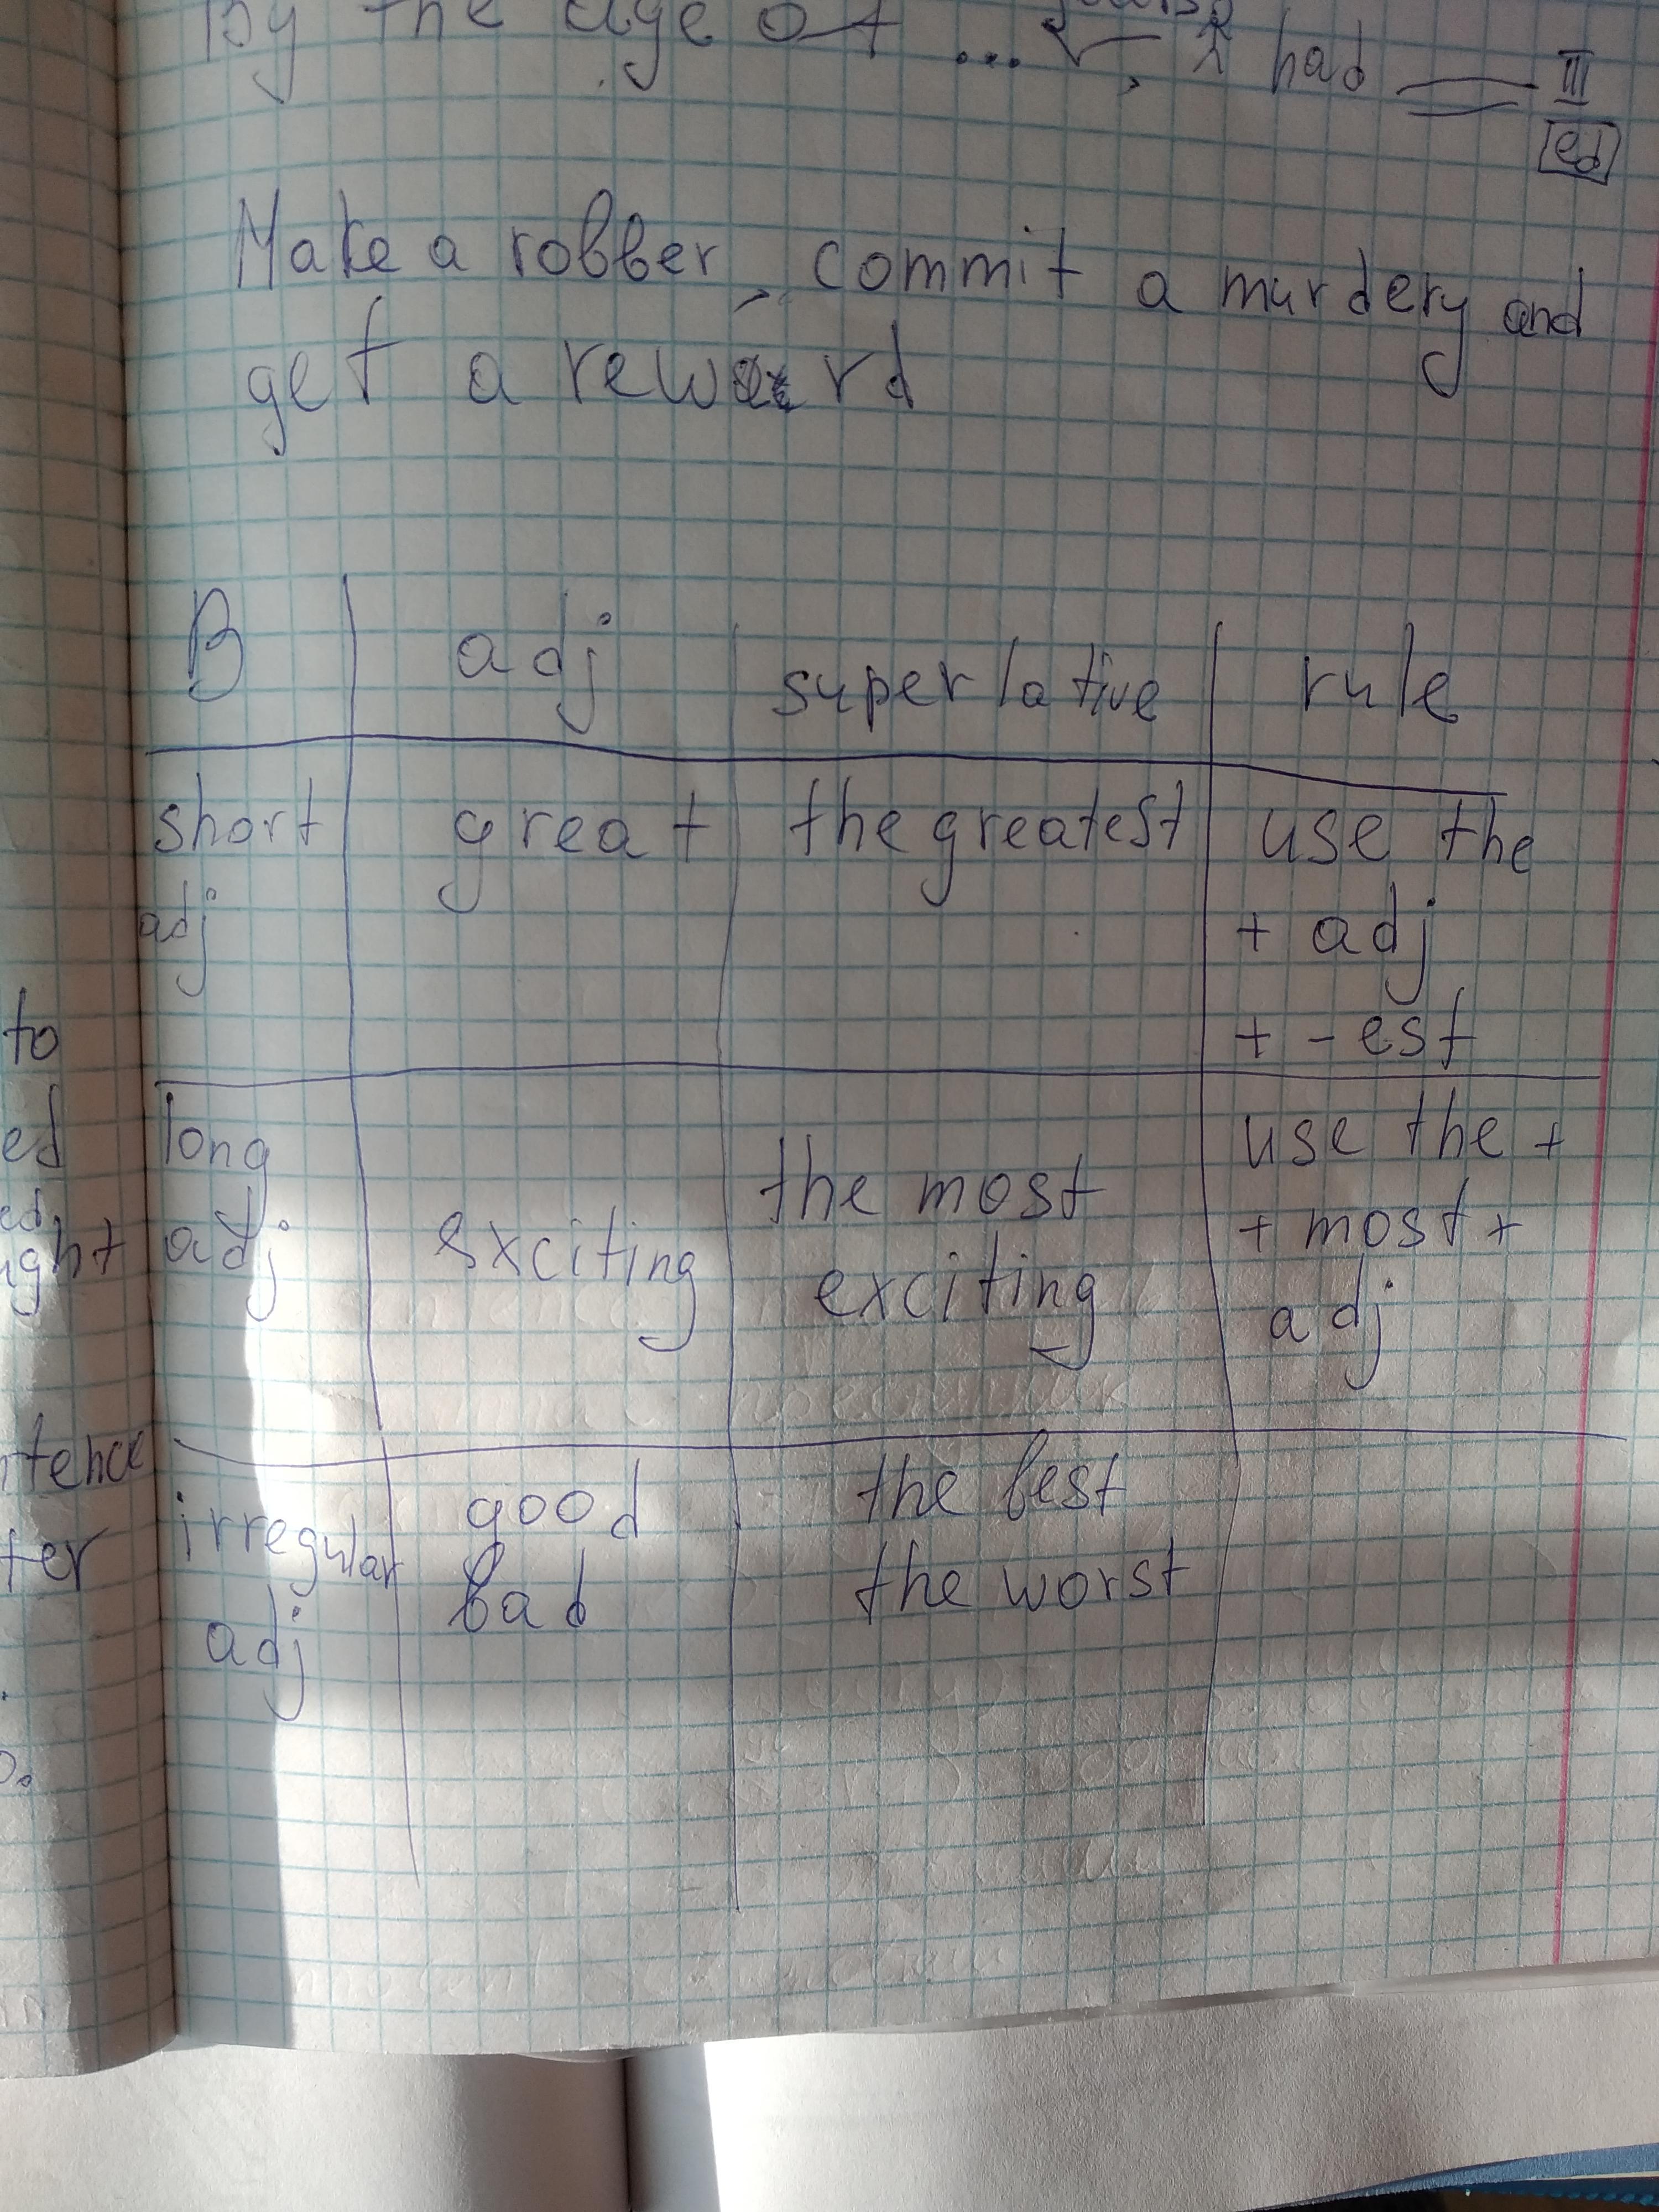 By the age of ... years, I had III
ed
Make a robber, commit a murdery and
get a reward
B adj superlative rule
short great the greatest use the
adj + adj
+ - est
long use the +
adj exciting the most + most +
exciting adj
irregular good the best
adj bad the worst
to
ed
ed,
ught
ntence
ter